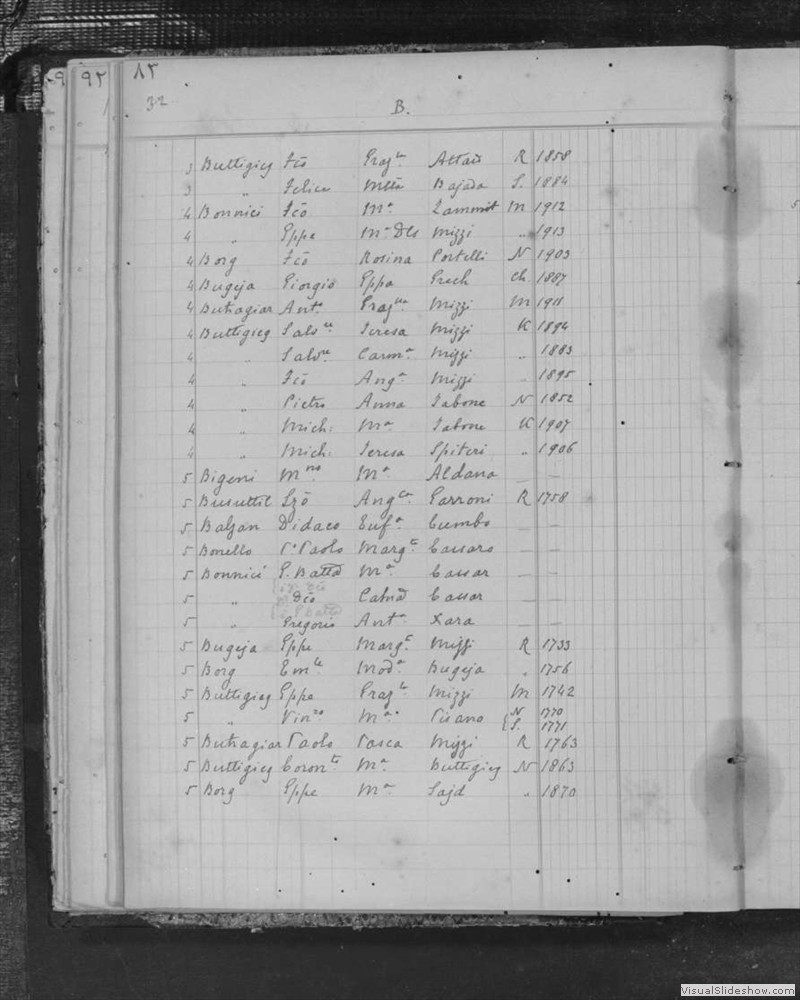 9 95 15
32
B.
3 Buttigieg Fcõ Grazla Attard R 1858
3 „ Felice Mtta Bajada S. 1884
4 Bonnici Fcõ Ma Zammit M 1912
4 „ Gppe Ma Dls Mizzi „ 1913
4 Borg Fcõ Rosina Portelli N 1903
4 Bugeja Giorgio Gppa Grech Ch. 1887
4 Buhagiar Anto Grazlla Mizzi M 1911
4 Buttigieg Salvre Teresa Mizzi K 1894
4 „ Salvre Carma Mizzi „ 1883
4 „ Fcõ Anga Mizzi „ 1895
4 „ Pietro Anna Tabone N 1852
4 „ Mich: Ma Tabone K 1907
4 „ Mich. Teresa Spiteri „ 1906
5 Bigeni Mno Ma Aldana — —
5 Busuttil Lzõ Angla Parroni R 1758
5 Balzan Didaco Eufa Cumbo — —
5 Bonello Paolo Margta Cassaro — —
5 Bonnici G. Batta Ma Cassar — —
5 „ Dco Catna Cassar — —
5 „ Gregorio Anta Xara — —
5 Bugeja Gppe Margta Mizzi R 1733
5 Borg Emle Moda Bugeja „ 1756
5 Buttigieg Gppe Grazla Mizzi M 1742
5 „ Vinzo Ma Pisano { N. 1770
S. 1771
5 Buhagiar Paolo Pasca Mizzi R 1763
5 Buttigieg Coronto Ma Buttigieg N 1863
5 Borg Gppe Ma Sajd „ 1870
VisualSlideshow.com